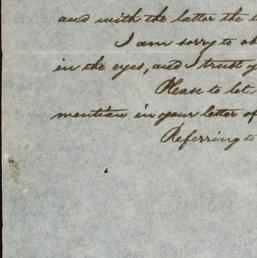 and with the latter the
I am sorry to ob
in the eyes, and I trust
Please to let
mention in your letter of
Referring to